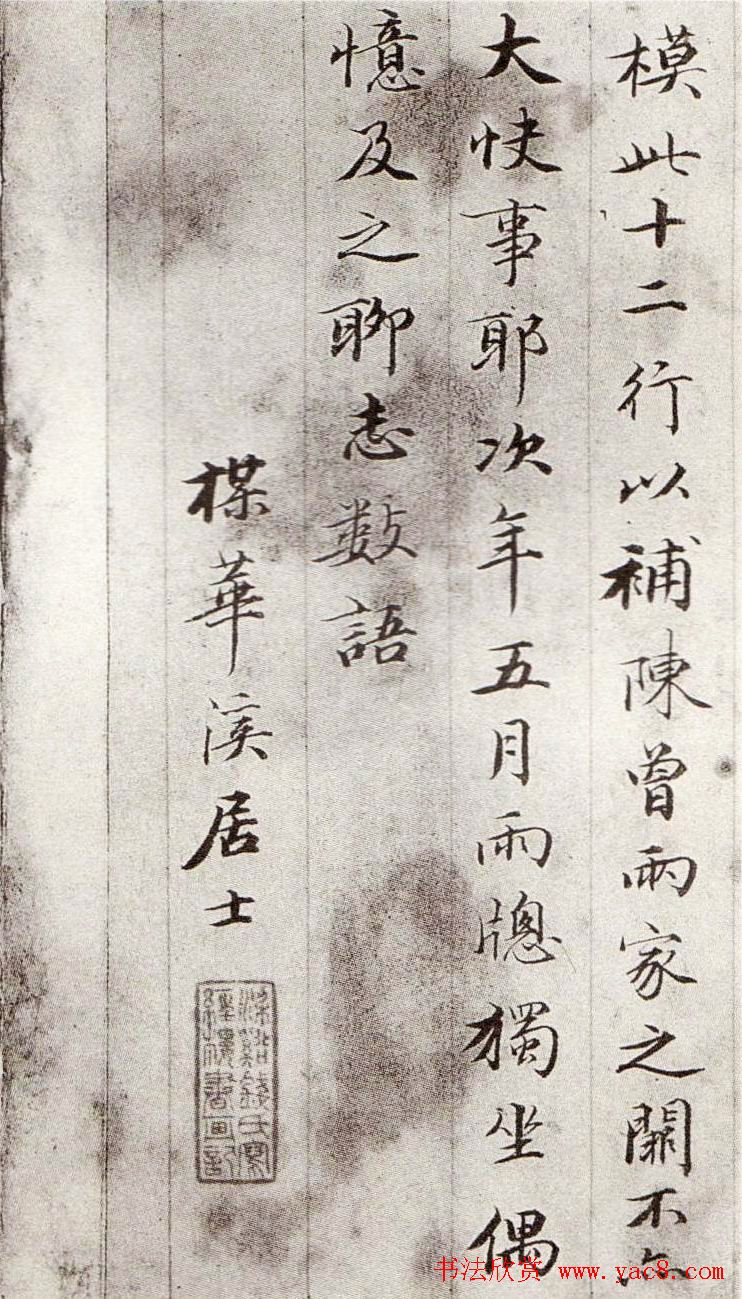 模此十二行以補陳曾兩家之闕不亦
大快事耶次年五月雨牕獨坐偶
憶及之聊志數語
楳華溪居士
梁溪錢氏寫
經樓書画記
书法欣赏 www.yac8.com